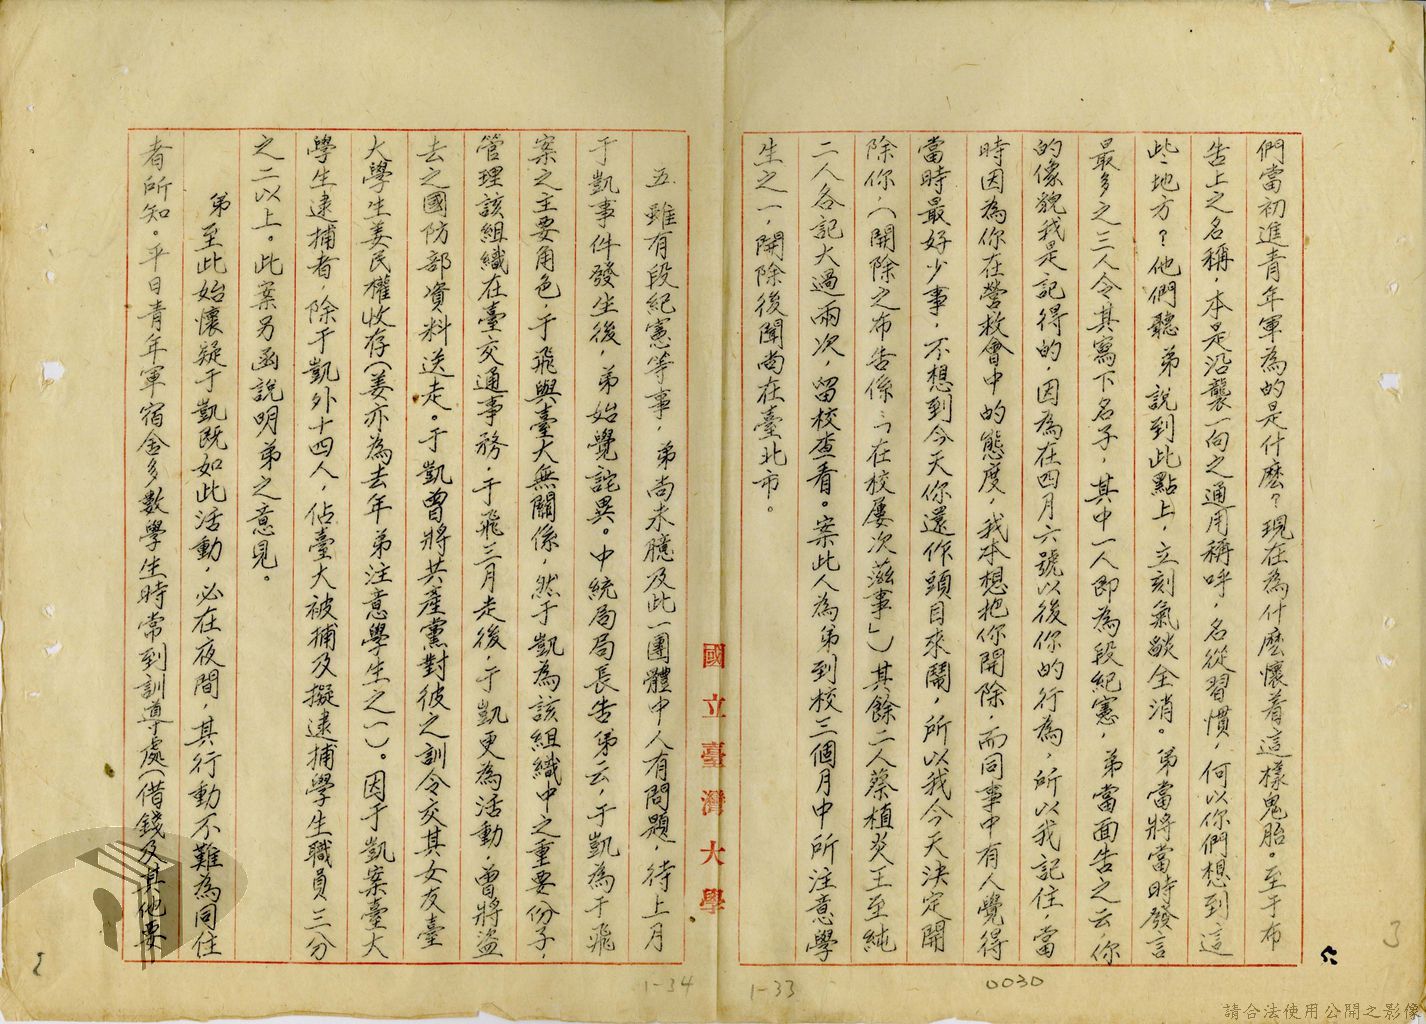 們當初進青年軍為的是什麼？現在為什麼懷着這樣鬼胎。至于布
告上之名稱，本是沿襲一向之通用稱呼，名從習慣，何以你們想到這
些地方？他們聽弟說到此點上，立刻氣燄全消。弟當將當時發言
最多之三人令其寫下名子，其中一人即為段紀憲，弟當面告之云，你
的像貌我是記得的，因為在四月六號以後你的行為，所以我記住，當
時因為你在營救會中的態度，我本想把你開除，而同事中有人覺得
當時最好少事，不想到今天你還作頭目來鬧，所以我今天決定開
除你，（開除之布告係「在校屢次滋事」）其餘二人蔡植炎王至純
二人各記大過兩次，留校查看。案此人為弟到校三個月中所注意學
生之一，開除後聞尚在臺北市。
五、雖有段紀憲等事，弟尚未臆及此一團體中人有問題，待上月
于凱事件發生後，弟始覺詫異。中統局局長告弟云，于凱為于飛
案之主要角色，于飛與臺大無關係，然于凱為該組織中之重要份子，
管理該組織在臺交通事務，于飛三月走後，于凱更為活動，曾將盜
去之國防部資料送走。于凱曾將共產黨對彼之訓令交其女友臺
大學生姜民權收存（姜亦為去年弟注意學生之一）。因于凱案臺大
學生逮捕者，除于凱外十四人，佔臺大被捕及擬逮捕學生職員三分
之二以上。此案另函說明弟之意見。
弟至此始懷疑于凱既如此活動，必在夜間，其行動不難為同住
者所知。平日青年軍宿舍多數學生時常到訓導處（借錢及其他要
國立臺灣大學
1-34
1-33
0030
3
2
請合法使用公開之影像